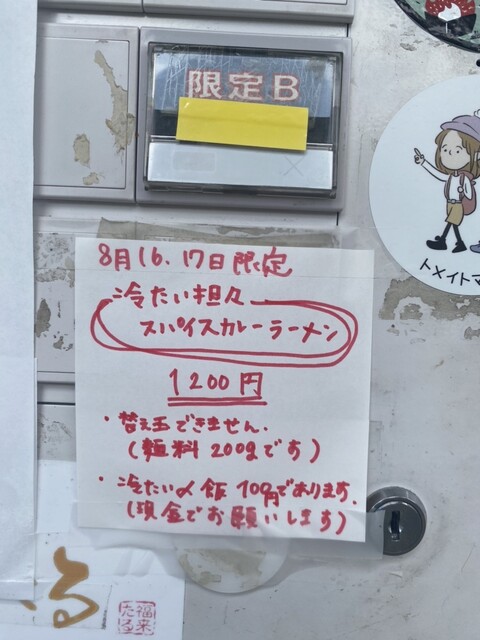 限定B
8月16.17日限定
冷たい担々
スパイスカレーラーメン
1200円
・替え玉できません.
(麺料200gです)
・冷たい〆飯100円であります.
(現金でお願いします)
トメイトマ
福来たる
る